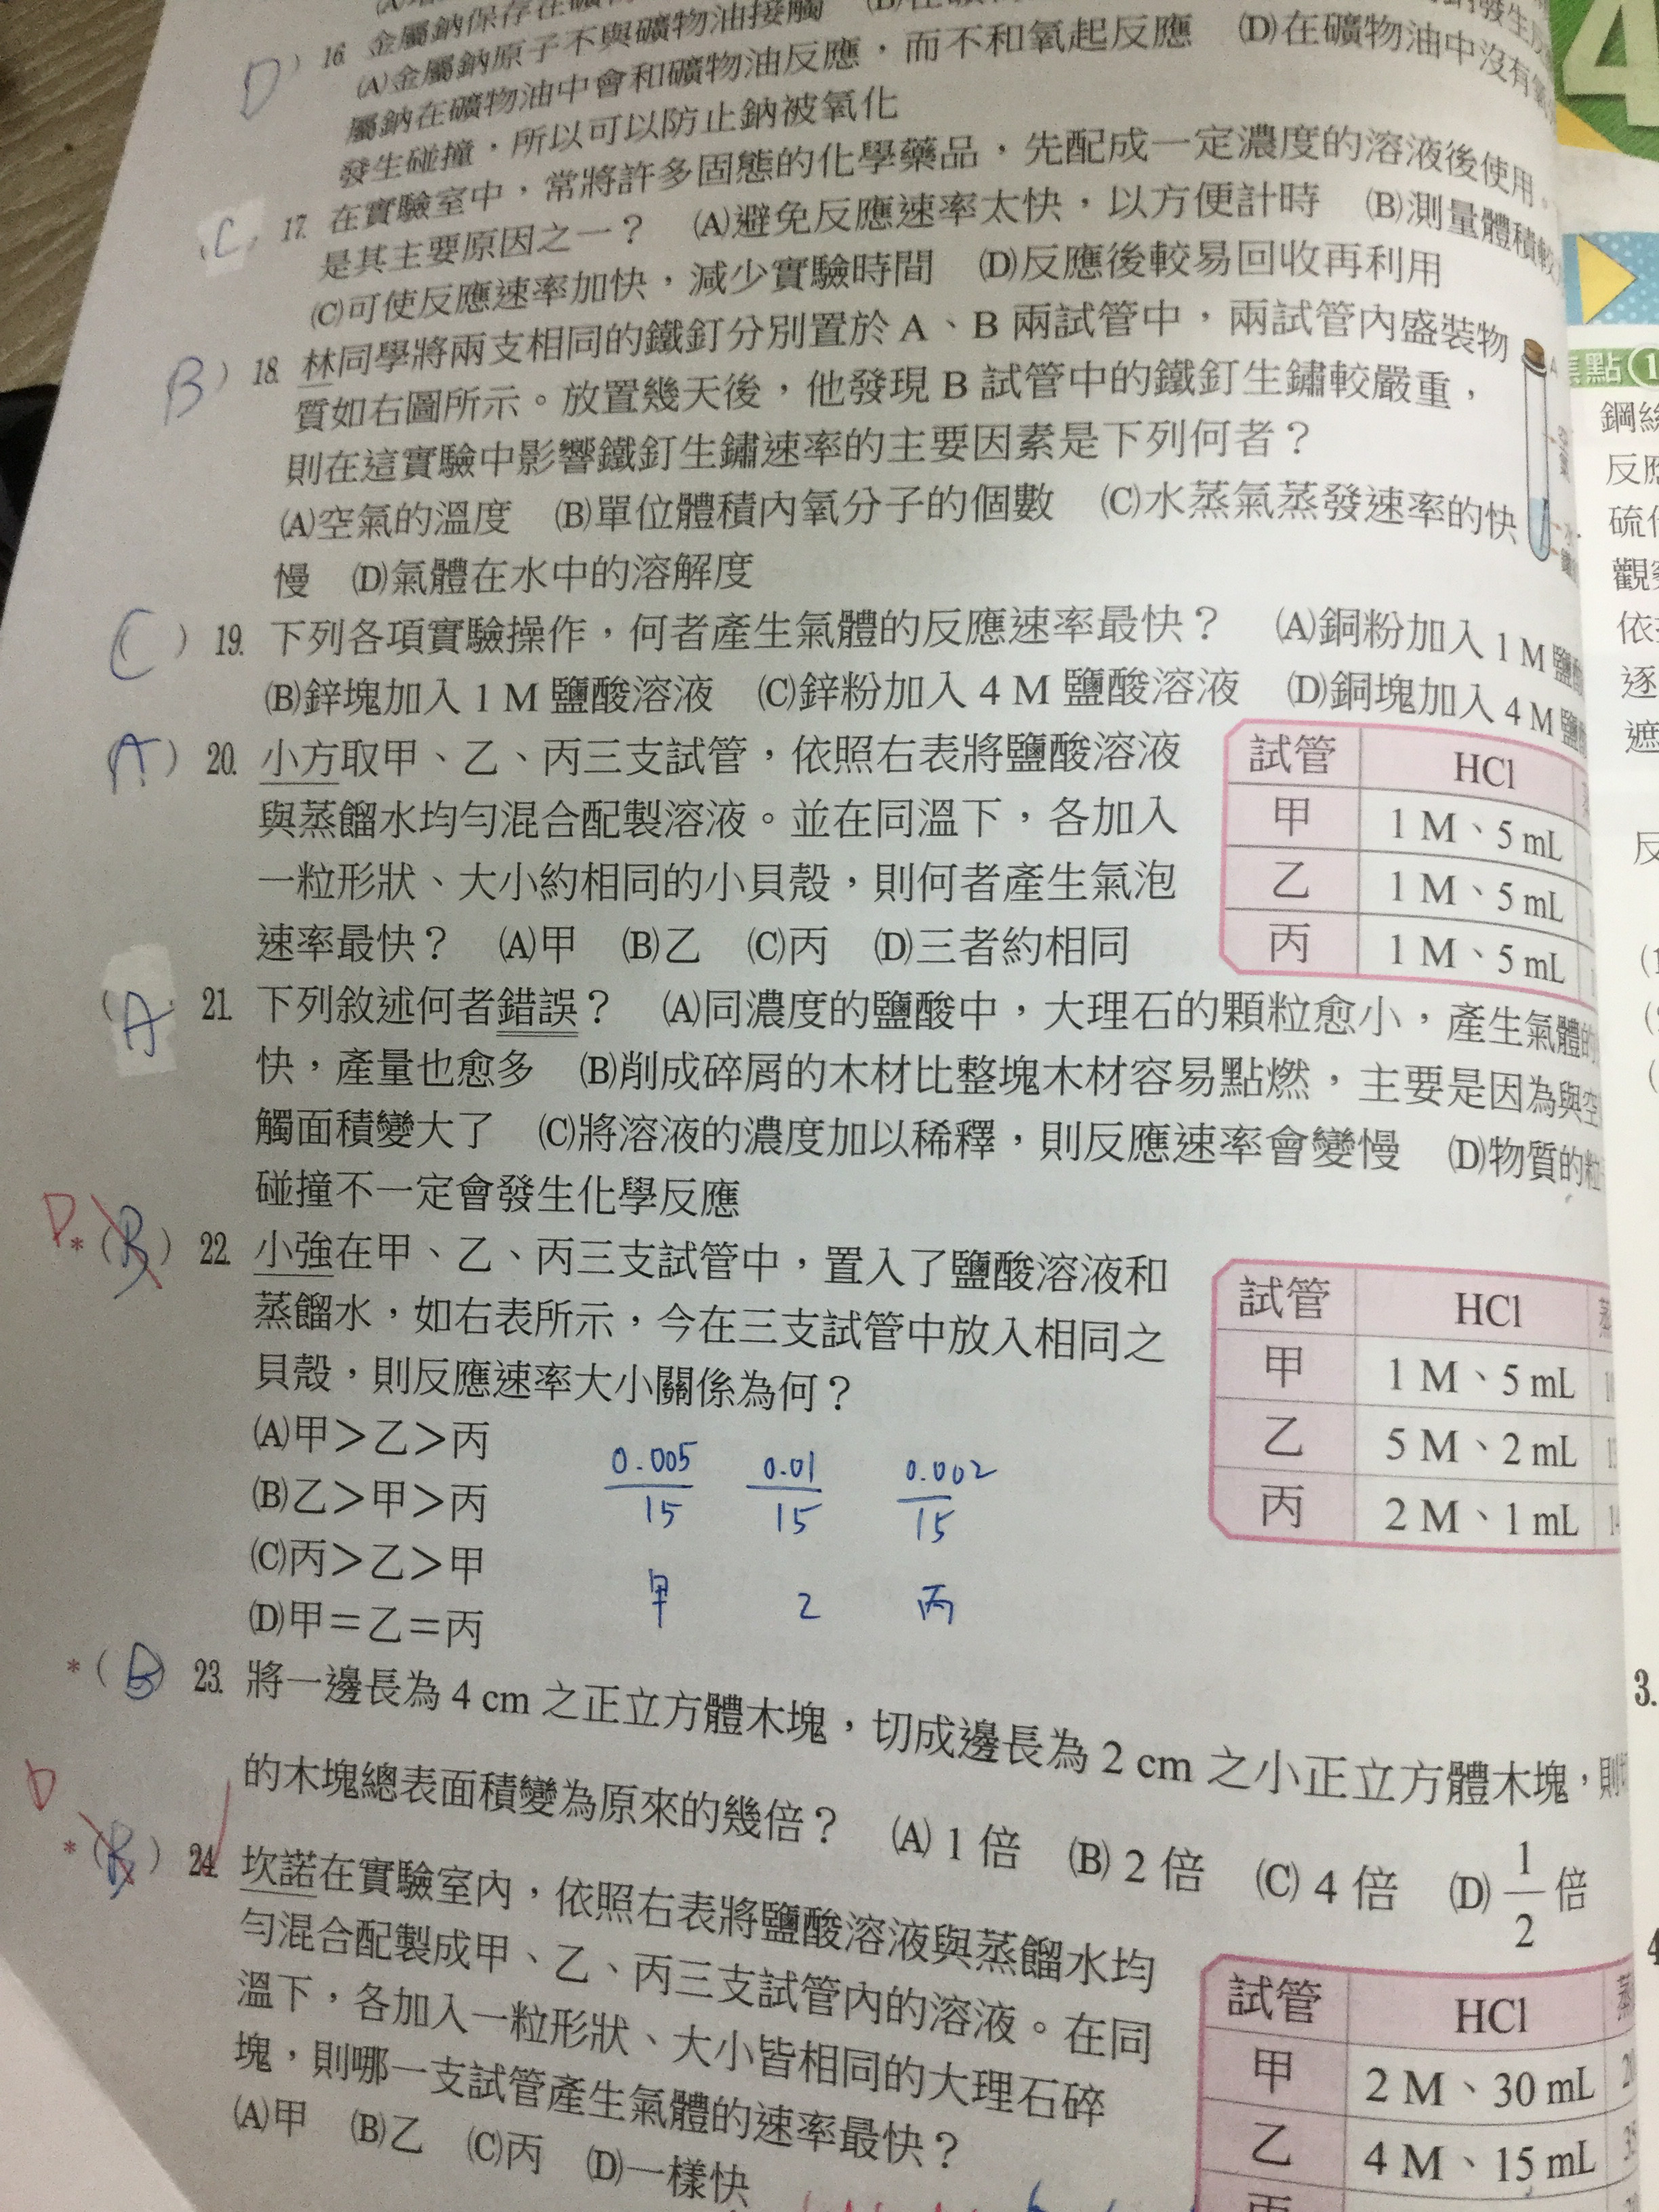 D ) 16. 金屬鈉保存在礦
(A)金屬鈉原子不與礦物油接觸
屬鈉在礦物油中會和礦物油反應，而不和氧起反應 (D)在礦物油中沒有氧
發生碰撞，所以可以防止鈉被氧化
(C) 17. 在實驗室中，常將許多固態的化學藥品，先配成一定濃度的溶液後使用。
是其主要原因之一？ (A)避免反應速率太快，以方便計時 (B)測量體積較
(C)可使反應速率加快，減少實驗時間 (D)反應後較易回收再利用
B ) 18. 林同學將兩支相同的鐵釘分別置於 A、B 兩試管中，兩試管內盛裝物
質如右圖所示。放置幾天後，他發現 B 試管中的鐵釘生鏽較嚴重，
則在這實驗中影響鐵釘生鏽速率的主要因素是下列何者？
(A)空氣的溫度 (B)單位體積內氧分子的個數 (C)水蒸氣蒸發速率的快
慢 (D)氣體在水中的溶解度
(C) 19. 下列各項實驗操作，何者產生氣體的反應速率最快？ (A)銅粉加入 1 M 鹽酸
(B)鋅塊加入 1 M 鹽酸溶液 (C)鋅粉加入 4 M 鹽酸溶液 (D)銅塊加入 4 M 鹽酸
(A) 20. 小方取甲、乙、丙三支試管，依照右表將鹽酸溶液
與蒸餾水均勻混合配製溶液。並在同溫下，各加入
一粒形狀、大小約相同的小貝殼，則何者產生氣泡
速率最快？ (A)甲 (B)乙 (C)丙 (D)三者約相同
試管 HCl
甲 1 M、5 mL
乙 1 M、5 mL
丙 1 M、5 mL
(A 21. 下列敘述何者錯誤？ (A)同濃度的鹽酸中，大理石的顆粒愈小，產生氣體的
快，產量也愈多 (B)削成碎屑的木材比整塊木材容易點燃，主要是因為與空
觸面積變大了 (C)將溶液的濃度加以稀釋，則反應速率會變慢 (D)物質的粒
碰撞不一定會發生化學反應
D *(B) 22. 小強在甲、乙、丙三支試管中，置入了鹽酸溶液和
蒸餾水，如右表所示，今在三支試管中放入相同之
貝殼，則反應速率大小關係為何？
(A)甲＞乙＞丙
(B)乙＞甲＞丙
(C)丙＞乙＞甲
(D)甲＝乙＝丙
0.005 0.01 0.002
15 15 15
甲 乙 丙
試管 HCl 蒸
甲 1 M、5 mL
乙 5 M、2 mL
丙 2 M、1 mL
*(B) 23. 將一邊長為 4 cm 之正立方體木塊，切成邊長為 2 cm 之小正立方體木塊，則
的木塊總表面積變為原來的幾倍？ (A) 1 倍 (B) 2 倍 (C) 4 倍 (D) 1/2 倍
D *(B) 24. 坎諾在實驗室內，依照右表將鹽酸溶液與蒸餾水均
勻混合配製成甲、乙、丙三支試管內的溶液。在同
溫下，各加入一粒形狀、大小皆相同的大理石碎
塊，則哪一支試管產生氣體的速率最快？
(A)甲 (B)乙 (C)丙 (D)一樣快
試管 HCl 蒸
甲 2 M、30 mL
乙 4 M、15 mL
丙
4
焦點 1
鋼絲
反應
硫
觀察
依
逐
遮
反
3.
4